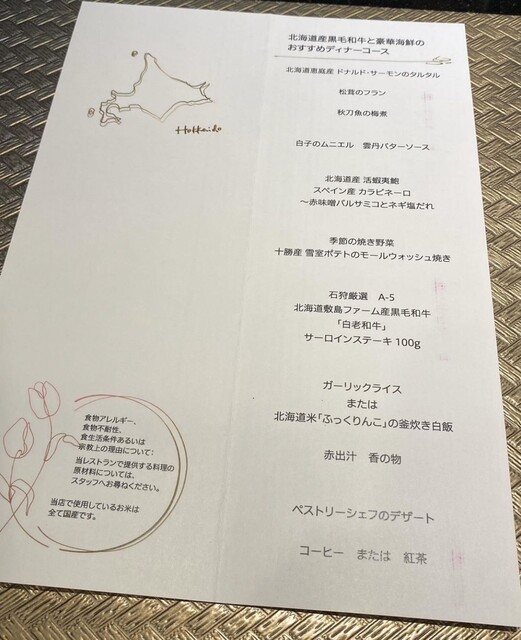 北海道産黒毛和牛と豪華海鮮の
おすすめディナーコース
北海道恵庭産 ドナルド・サーモンのタルタル
松茸のフラン
秋刀魚の梅煮
白子のムニエル 雲丹バターソース
北海道産 活蝦夷鮑
スペイン産 カラビネーロ
～赤味噌バルサミコとネギ塩だれ
季節の焼き野菜
十勝産 雪室ポテトのモールウォッシュ焼き
石狩厳選 A-5
北海道敷島ファーム産黒毛和牛
「白老和牛」
サーロインステーキ 100g
ガーリックライス
または
北海道米「ふっくりんこ」の釜炊き白飯
赤出汁 香の物
ペストリーシェフのデザート
コーヒー または 紅茶
Hokkaido
食物アレルギー、
食物不耐性、
食生活条件あるいは
宗教上の理由について：
当レストランで提供する料理の
原材料については、
スタッフへお尋ねください。
当店で使用しているお米は
全て国産です。